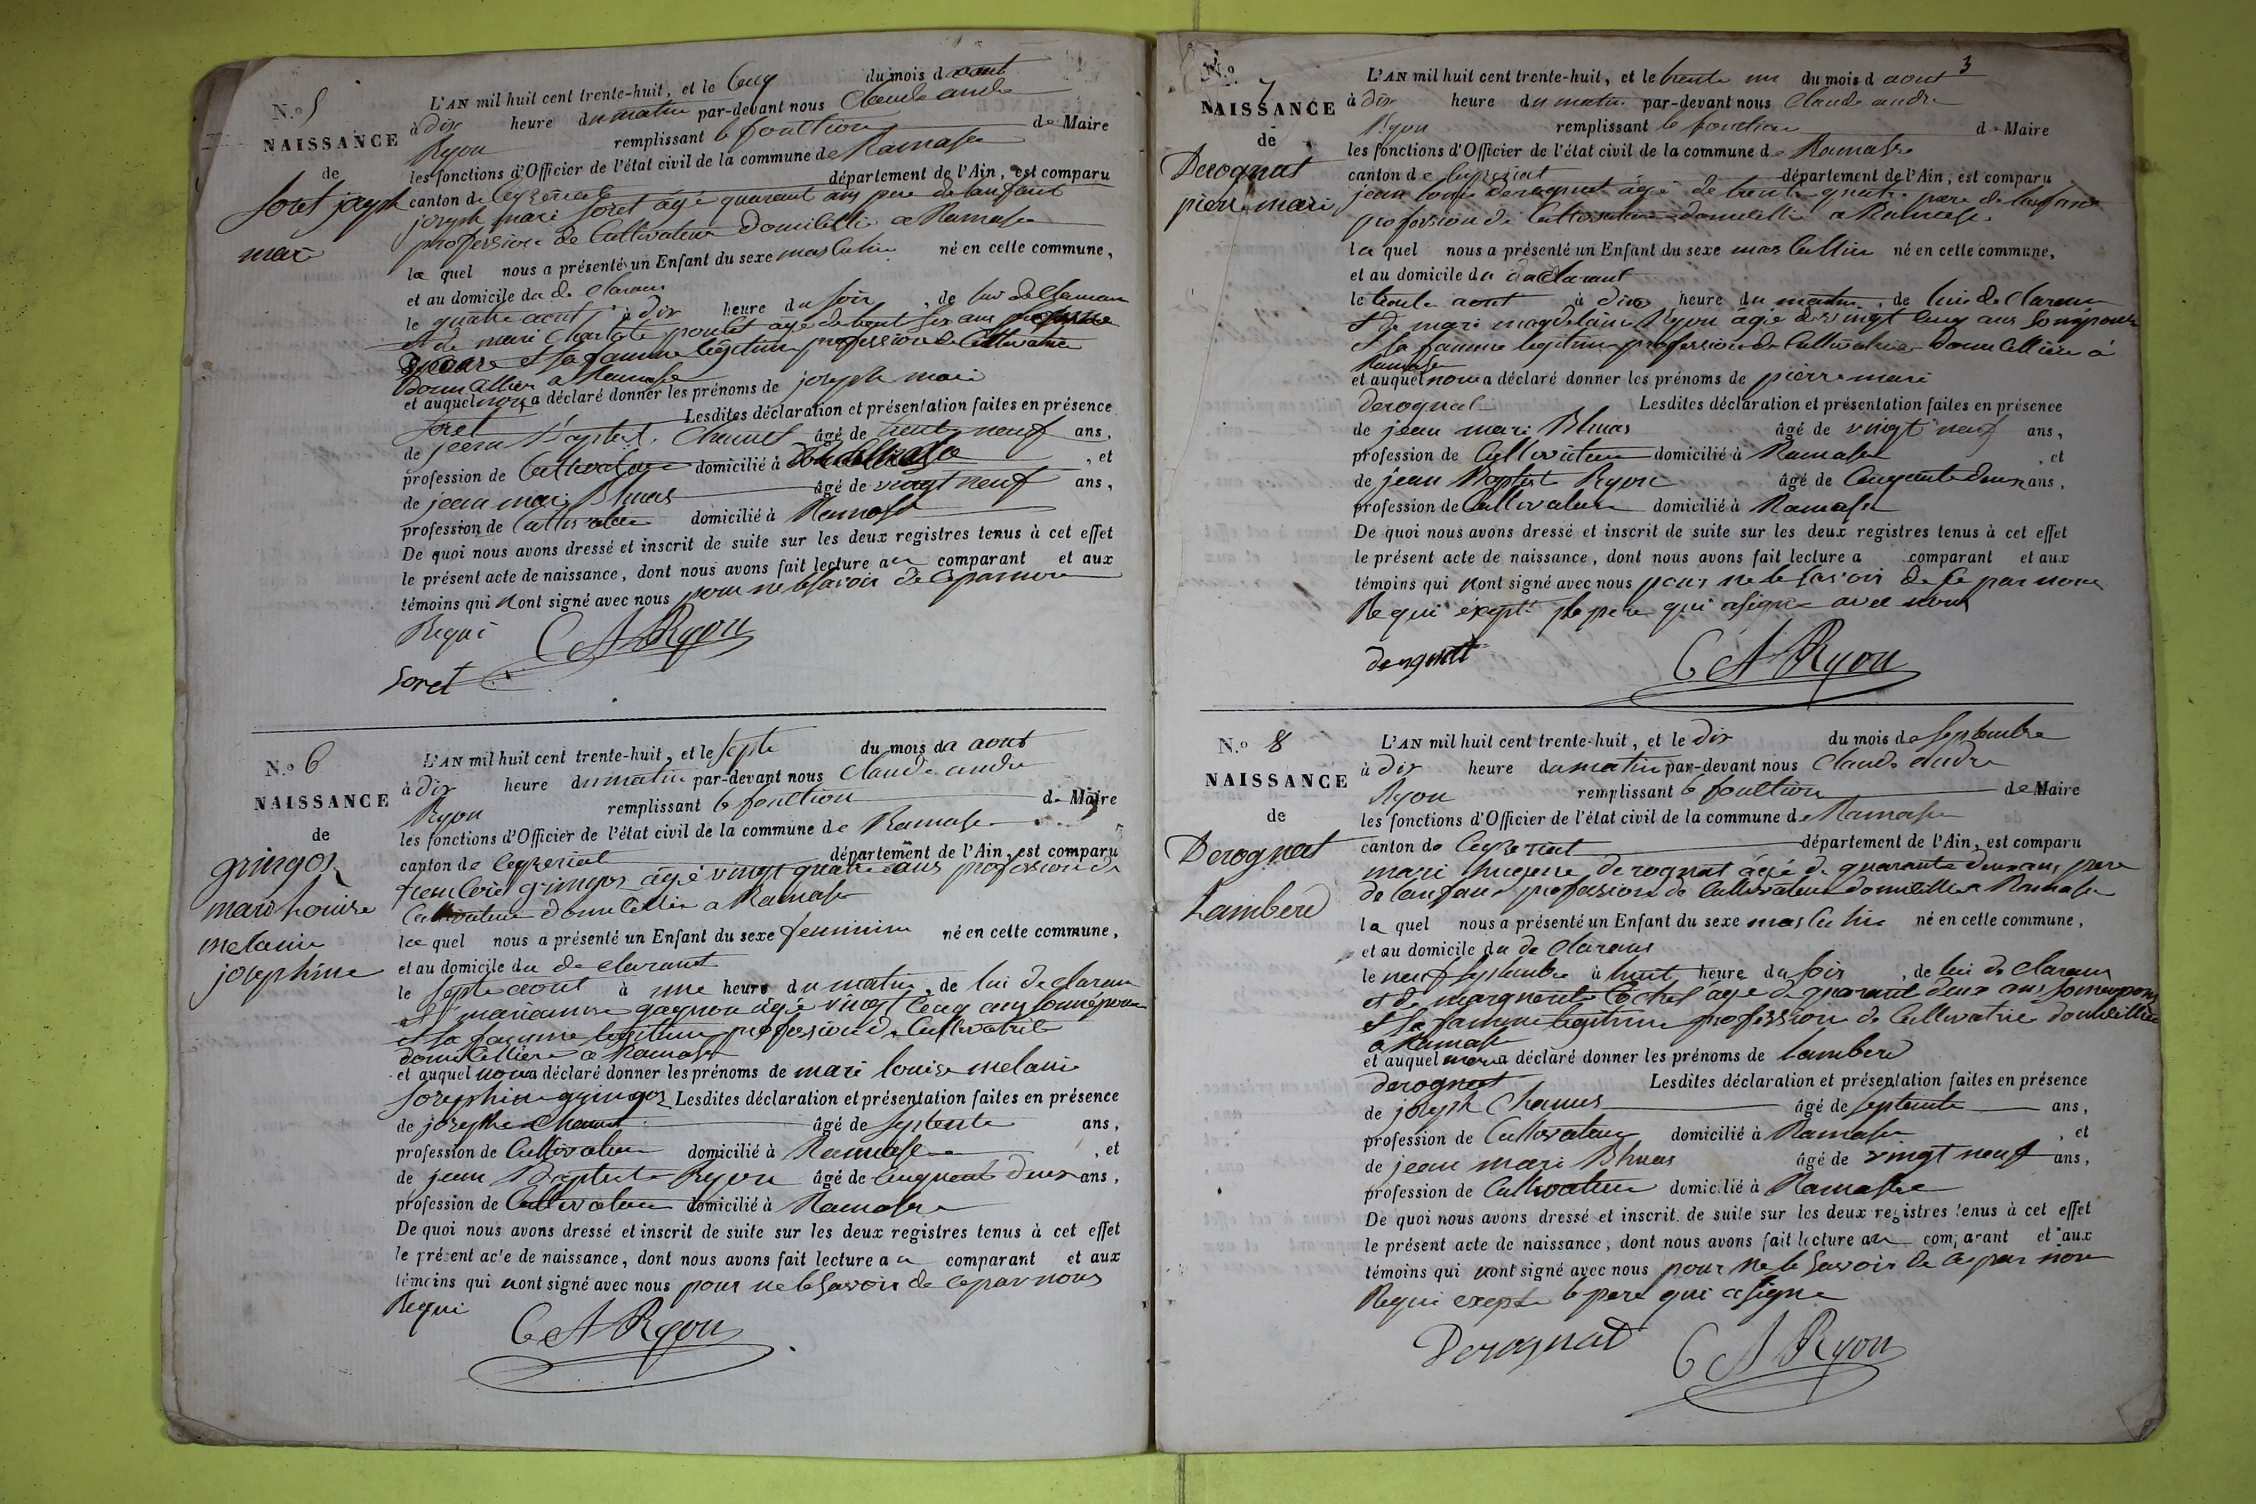 N.º 5
NAISSANCE
de
Soret joseph
mari
L'AN mil huit cent trente-huit, et le Cinq du mois d aout
à dix heure du matin par-devant nous Claude andre
Ryon remplissant le fonction de Maire
les fonctions d'Officier de l'état civil de la commune de Ramasse
canton de Ceyzeriat département de l'Ain, est comparu
joseph mari Soret âgé quarant ans pere de lanfant
profession de Cultivateur domicillié a Ramasse
le quel nous a présenté un Enfant du sexe masculin né en cette commune,
et au domicile du de clarant
le quatre aout à dix heure du soir, de lui de claran
et de mari Charlote poulet age de trent six ans
Epouse et sa famme légitime profession de Cultivatrice
domicillier a Ramasse
et auquel nous a déclaré donner les prénoms de joseph mari
Soret Lesdites déclaration et présentation faites en présence
de jean Baptist Chanel âgé de trente neuf ans,
profession de Cultivateur domicilié à Ramasse, et
de jean mari Bluas âgé de vingt neuf ans,
profession de Cultivateur domicilié à Ramasse
De quoi nous avons dressé et inscrit de suite sur les deux registres tenus à cet effet
le présent acte de naissance, dont nous avons fait lecture au comparant et aux
témoins qui nont signé avec nous pour ne le savoir de ce par nous
Requi C A Ryon
Soret
N.º 6
NAISSANCE
de
gringoz
mari Louise
melanie
josephine
L'AN mil huit cent trente-huit, et le septe du mois da aout
à dix heure du matin par-devant nous Claude andre
Ryon remplissant le fonction de Maire
les fonctions d'Officier de l'état civil de la commune de Ramasse
canton de Ceyzeriat département de l'Ain, est comparu
gringoz âgé vingt quatre ans profession de
Cultivateur domicillier a Ramasse
le quel nous a présenté un Enfant du sexe feminin né en cette commune,
et au domicile du de clarant
le septe aout à une heure du matin, de lui de claran
et marianne gagnon âgé vingt Cinq ans son épouse
et sa famme legitime profession de Cultivatrice
domicilliere a Ramasse
et auquel nous a déclaré donner les prénoms de mari louise melanie
Josephine gringoz Lesdites déclaration et présentation faites en présence
de josephe Chanel âgé de septente ans,
profession de Cultivateur domicilié à Ramasse, et
de jean Baptiste Ryon âgé de Cinquante deux ans,
profession de Cultivateur domicilié à Ramasse
De quoi nous avons dressé et inscrit de suite sur les deux registres tenus à cet effet
le présent acte de naissance, dont nous avons fait lecture au comparant et aux
témoins qui nont signé avec nous pour ne le savoir de ce par nous
Requi
C A Ryon
3
N.º 7
NAISSANCE
de
Derognat
pierre mari
L'AN mil huit cent trente-huit, et le trente un du mois d aout
à dix heure du matin par-devant nous Claude andre
Ryon remplissant le fonction de Maire
les fonctions d'Officier de l'état civil de la commune de Ramasse
canton de Ceyzeriat département de l'Ain, est comparu
jean louis derognat âgé de trente quatre pere de lanfant
profession de Cultivateur domicillié a Ramasse
le quel nous a présenté un Enfant du sexe mas Cullin né en cette commune,
et au domicile du déclarant
le trente aout à dix heure du matin, de lui de claran
et de mari magdelaine Ryon âgée de vingt cinq ans son épouse
et sa famme legitime profession de Cultivatrice domicilliere à
Ramasse
et auquel nous a déclaré donner les prénoms de pierre mari
derognat Lesdites déclaration et présentation faites en présence
de jean mari Bluas âgé de vingt neuf ans,
profession de Cultivateur domicilié à Ramasse, et
de jean Baptist Ryon âgé de Cinquante deux ans,
profession de Cultivateur domicilié à Ramasse
De quoi nous avons dressé et inscrit de suite sur les deux registres tenus à cet effet
le présent acte de naissance, dont nous avons fait lecture a comparant et aux
témoins qui nont signé avec nous pour ne le savoir de ce par nous
Re qui éxepté le pere qui a signe avec nous
derognat C A Ryon
N.º 8
NAISSANCE
de
Derognat
Lamberd
L'AN mil huit cent trente-huit, et le dix du mois de Septembre
à dix heure du matin par-devant nous Claude andre
Ryon remplissant le fonction de Maire
les fonctions d'Officier de l'état civil de la commune de Ramasse
canton de Ceyzeriat département de l'Ain, est comparu
mari derognat âgé de quarante deux ans pere
de lanfant profession de Cultivateur domicillié a Ramasse
le quel nous a présenté un Enfant du sexe mas Culin né en cette commune,
et au domicile du de clarans
le neuf septembre à huit heure du soir, de lui de claran
et de marguerite Cochet âgé de quarant deux ans son epouse
et sa famme legitime profession de Cultivatrice domicilliée
a Ramasse
et auquel nous a déclaré donner les prénoms de lamberd
derognat Lesdites déclaration et présentation faites en présence
de joseph Chanel âgé de septente ans,
profession de Cultivateur domicilié à Ramasse, et
de jean mari Bluas âgé de vingt neuf ans,
profession de Cultivateur domicilié à Ramasse
De quoi nous avons dressé et inscrit de suite sur les deux registres tenus à cet effet
le présent acte de naissance, dont nous avons fait lecture au comparant et aux
témoins qui nont signé avec nous pour ne le savoir de ce par nous
Requi exepte le pere qui a signe
Derognat C A Ryon